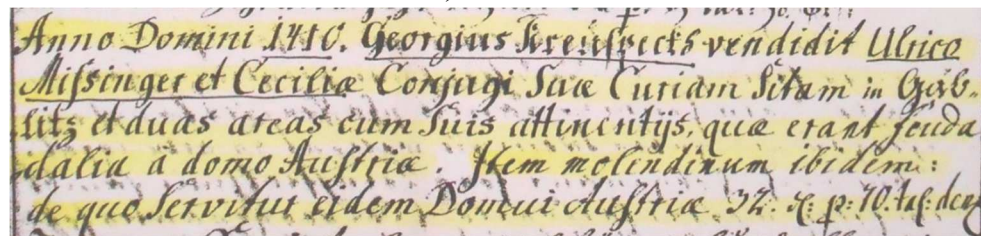 Anno Domini 1410. Georgius Kreuspecks vendidit Ulrico
Missinger et Ceciliæ Conjugi Suæ Curiam Sitam in Gäb-
litz et duas areas cum Suis attinentijs, quæ erant feuda
dalia â domo Austriæ. Item molendinum ibidem:
de quo Servitur eidem Domui Austriæ 32. p: 10. tal: den